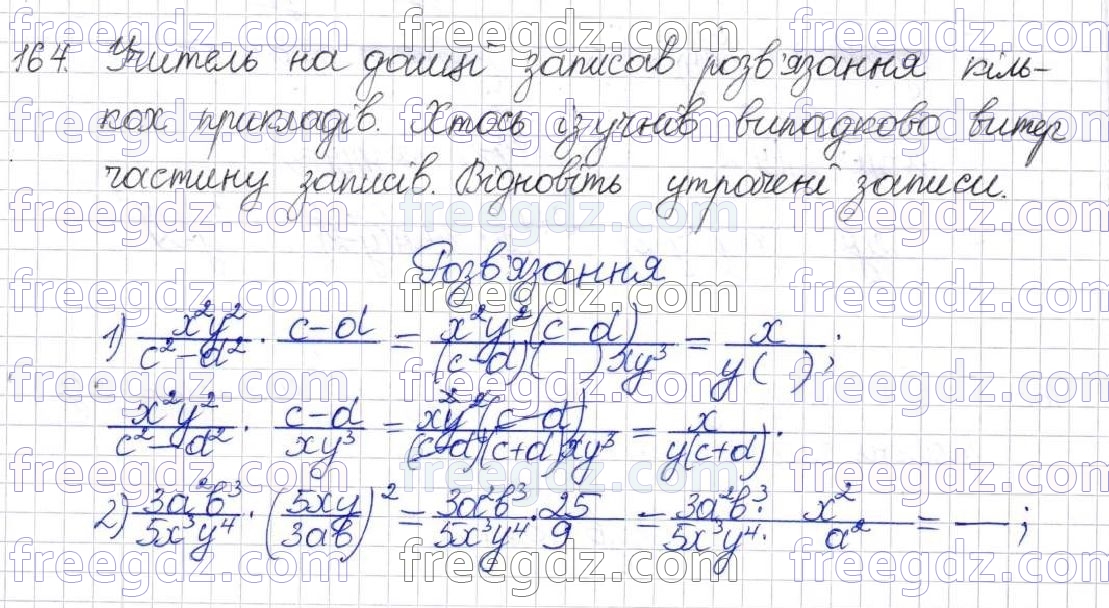 164. Учитель на дошці записав розв'язання кіль-
кох прикладів. Хтось із учнів випадково витер
частину записів. Відновіть утрачені записи.
Розв'язання
1) x²y²/(c²-d²) · (c-d)/ = x²y²(c-d)/((c-d)( )xy³) = x/(y( ));
x²y²/(c²-d²) · (c-d)/(xy³) = x²y²(c-d)/((c-d)(c+d)xy³) = x/(y(c+d)).
2) 3a²b³/(5x³y⁴) · (5xy/(3ab))² = 3a²b³/(5x³y⁴) · 25/9 = 3a²b³· x²/(5x³y⁴· a²) = —;
freegdz.com